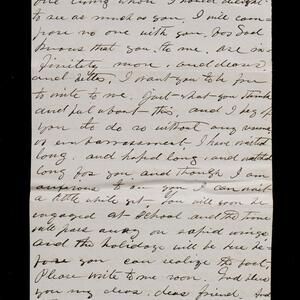 to see as much as you. I will com-
pare no one with you, for God
knows that you, to me, are in-
finitely more, and dearer,
and better, I want you to be free
to write to me. Just what you think
and feel about this, and I beg of
you to do so without any
or embarrassment. I have waited
long, and hoped long, and watched
long for you, and though I am
anxious to see you I can wait
a little while yet. You will soon be
engaged at school and the time
will pass away on rapid wings
and the holidays will be here be-
fore you can realize the fact.
Please write to me soon. God bless
you my dear, dear friend, and